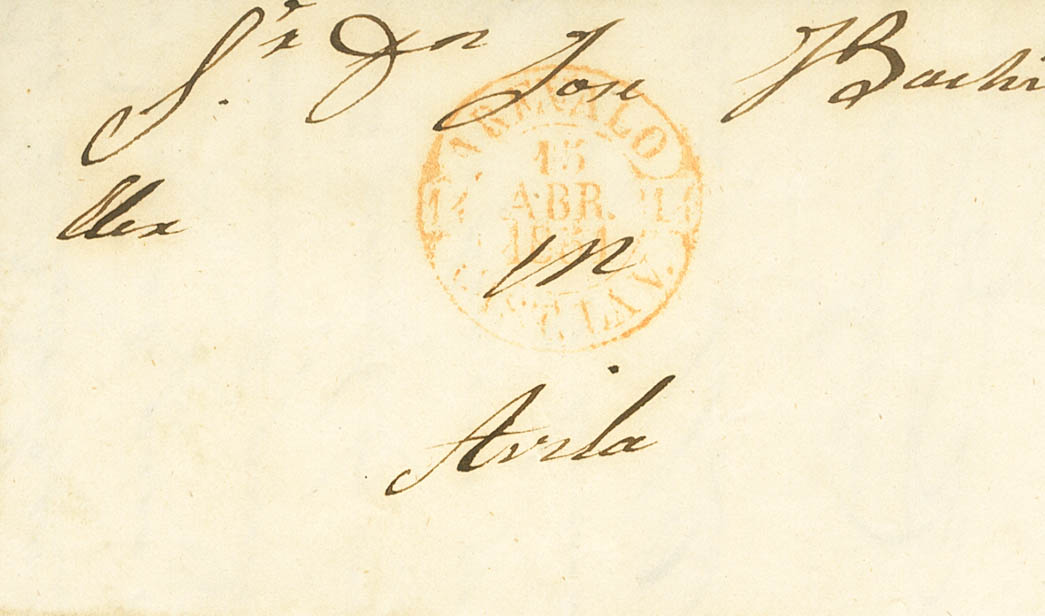 Sr Dn Jose J Bachi
ller
AREVALO
15
ABR.
1851
CAST. LA V.
m
Avila